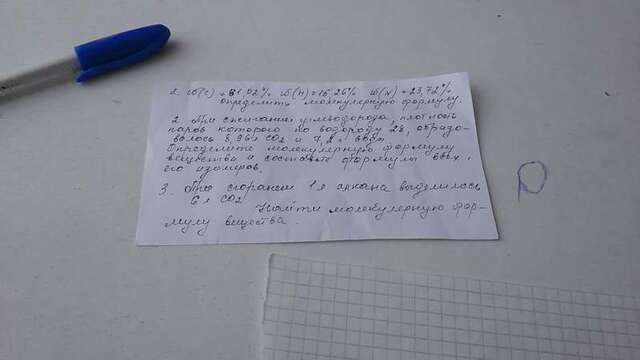 1. ω(C) = 61,02% ω(H) = 15,26% ω(N) = 23,72%
Определить молекулярную формулу.
2. При сжигании углеводорода, плотность
паров которого по водороду 28, образо-
валось 8,96л CO2 и 7,2г воды
Определите молекулярную формулу
вещества и составьте формулы всех
его изомеров.
3. При сгорании 1л алкана выделилось
6л CO2
Найти молекулярную фор-
мулу вещества.